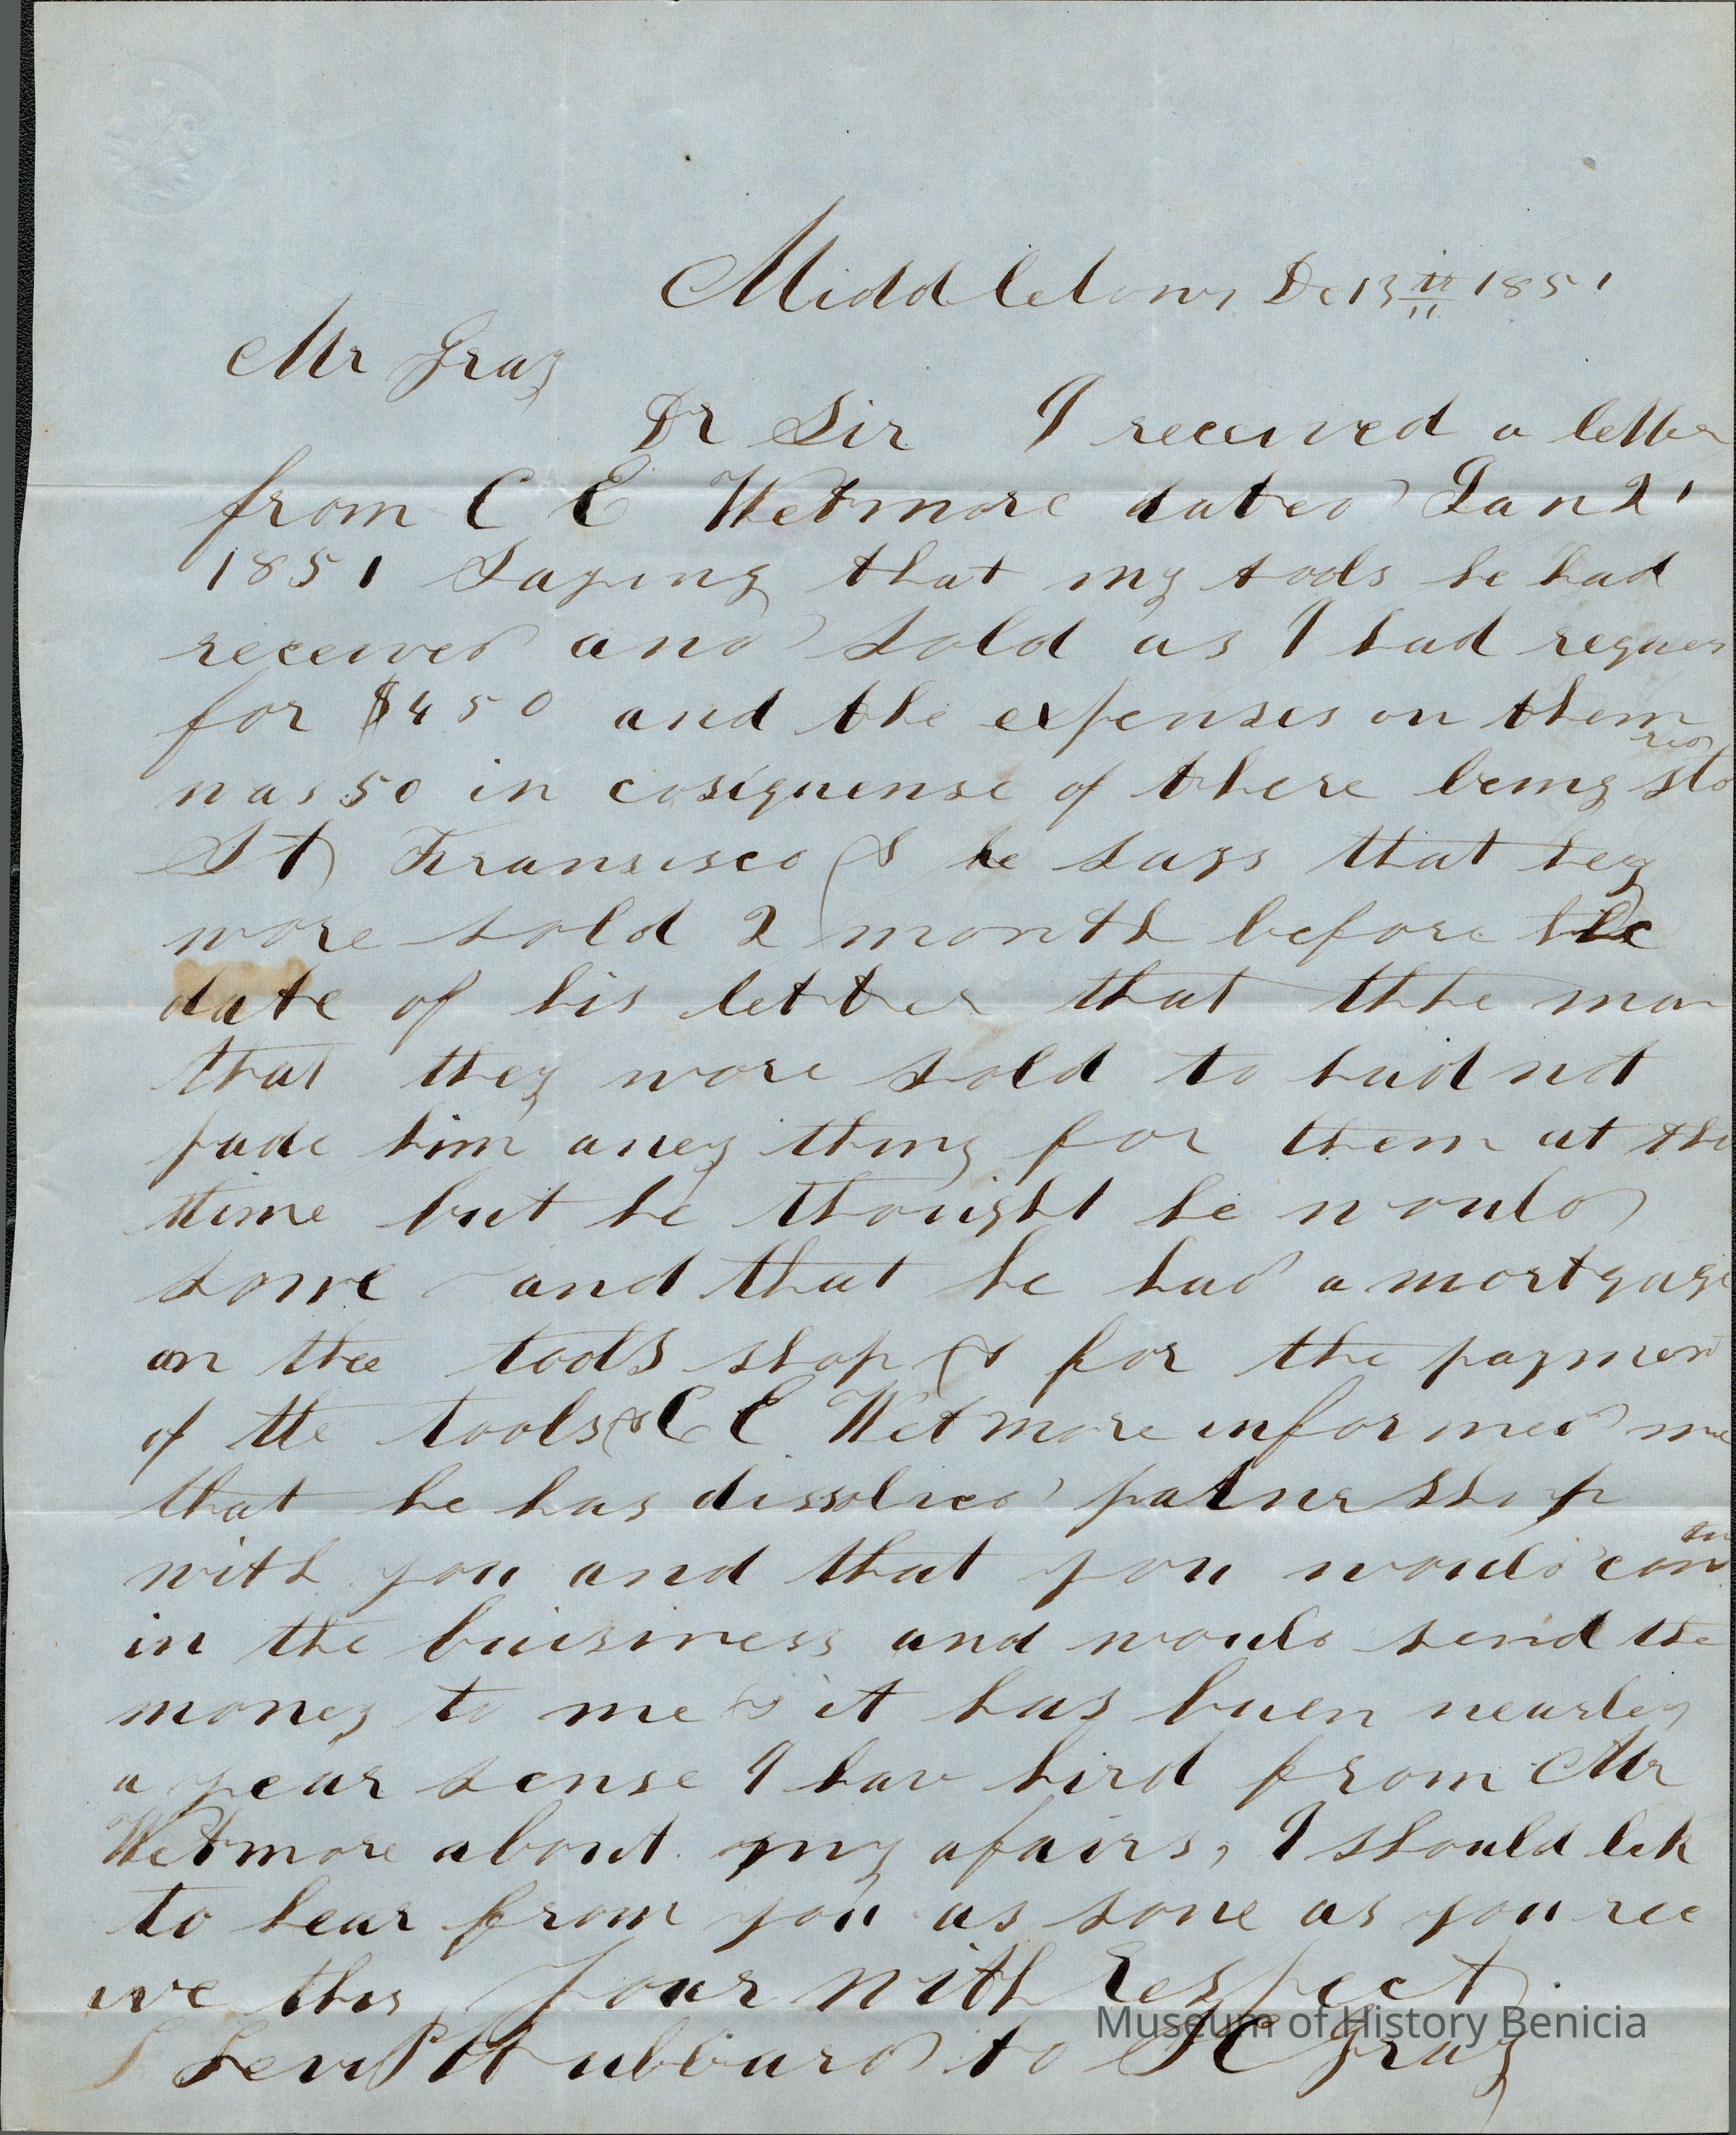 Middletown De 13th 1851
Mr Gray
Dr Sir I received a letter
from C E Wetmore dated Jan 21
1851 Saying that my tools he had
received and sold as I had reques
for $450 and the expenses on them
was 50 in cosiquense of there being sto
red
St Fransisco & he says that hey
wore sold 2 month before the
date of his letter that thhe man
that they wore sold to haid not
pade him aney thing for them at the
time but he thought he would
sone and that he had a mortgage
on the tools shop & for the payment
of the tools & C E Wetmore informed me
that he has dissolved patnership
with you and that you would con
tu
in the buisiness and would send the
money to me & it has buen nearley
a year sense I hav hird from Mr
Wetmore about my afairs, I should lik
to hear from you as sone as you rec
ive this your with Respect
Levi P Hubbard to Gray
Museum of History Benicia